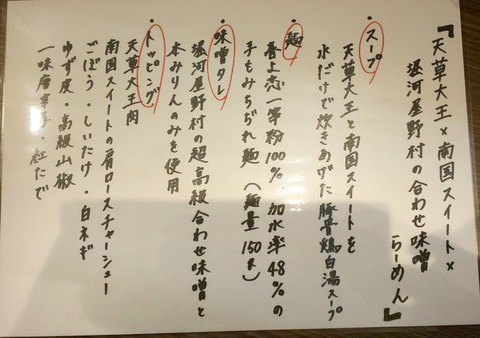 『天草大王×南国スイート×
堀河屋野村の合わせ味噌
らーめん』
・スープ
天草大王と南国スイートを
水だけで炊きあげた豚骨鶏白湯スープ
・麺
春よ恋一等粉100%、加水率48%の
手もみちぢれ麺(麺量150g)
・味噌タレ
堀河屋野村の超高級合わせ味噌と
本みりんのみを使用
・トッピング
天草大王肉
南国スイートの肩ロースチャーシュー
ごぼう・しいたけ・白ネギ
ゆず皮・高級山椒
一味唐辛子・紅たで